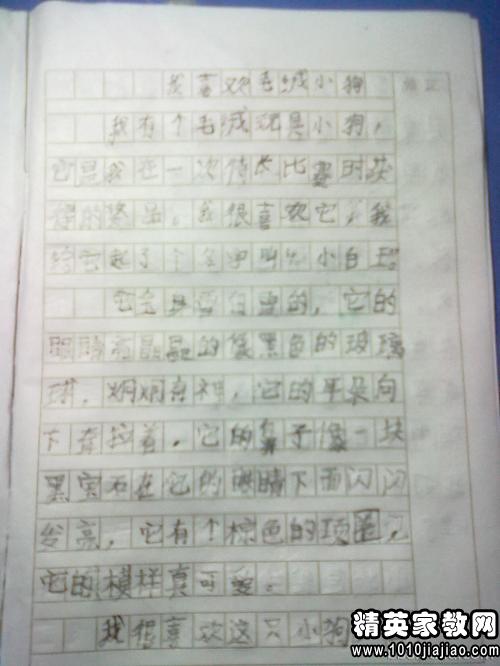 我喜欢毛绒小狗
我有个毛绒玩具小狗，
它是我在一次特长比赛时获
得的奖品，我很喜欢它，我
给它起了个名字叫 小白
它全身雪白雪白的，它的
眼睛亮晶晶的像黑色的玻璃
球，炯炯有神，它的耳朵向
下耷拉着，它的鼻子像一块
黑宝石在它的眼睛下面闪闪
发亮，它有个棕色的项圈，
它的模样真可爱。
我很喜欢这只小狗
精英家教网
www.1010jiajiao.com